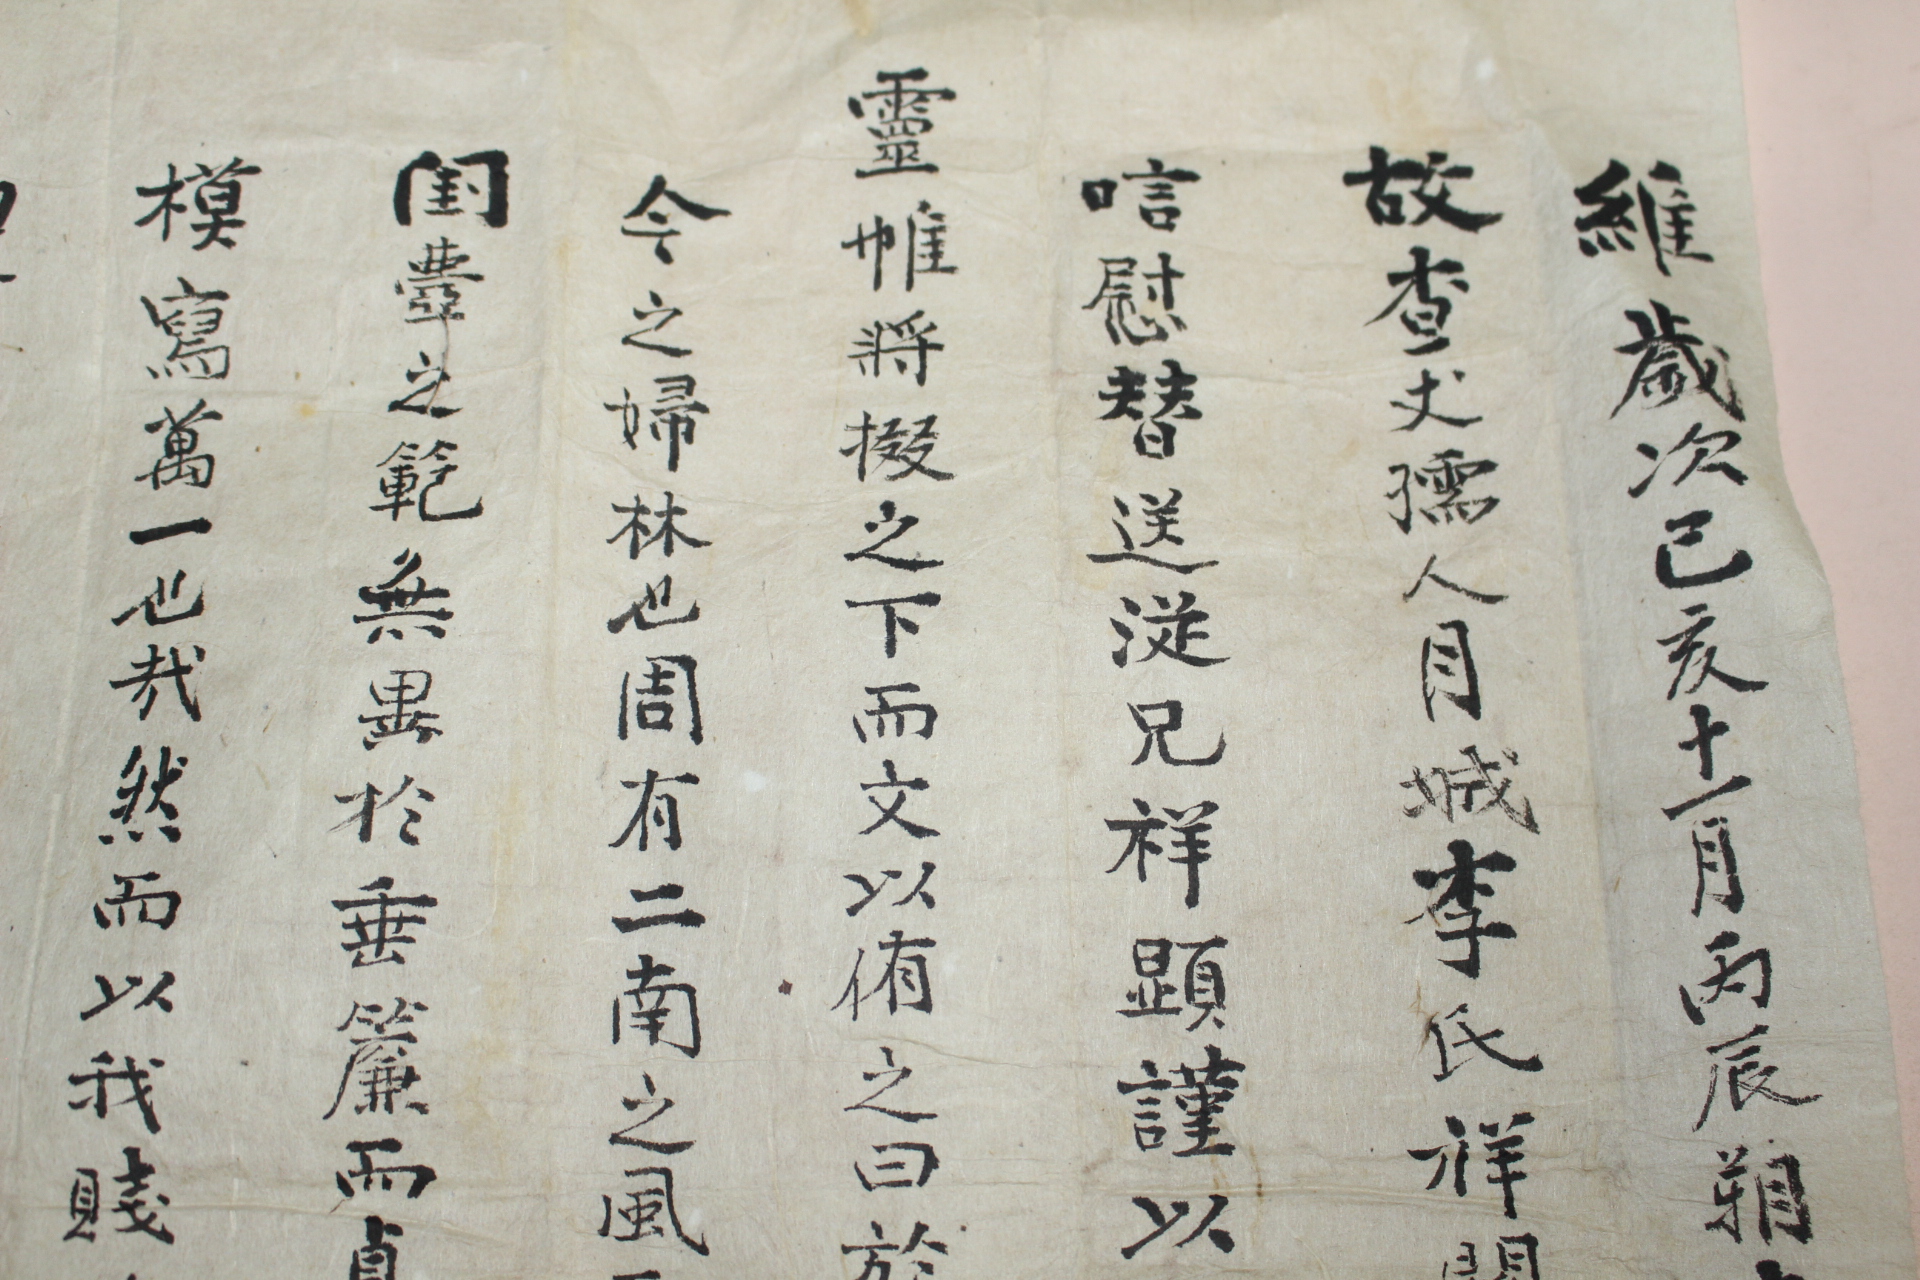 維歲次己亥十一月丙辰朔
故查丈孺人月城李氏祥
唁慰替送從兄祥顕謹以
靈帷將掇之下而文以侑之曰於
今之婦林也周有二南之風
閨壼之範無異於垂簾而貞
模寫萬一也哉然而以我賤